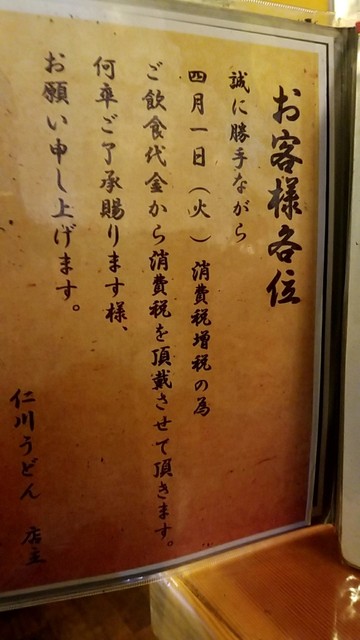 お客様各位
誠に勝手ながら
四月一日（火）消費税増税の為
ご飲食代金から消費税を頂戴させて頂きます。
何卒ご了承賜ります様、
お願い申し上げます。
仁川うどん 店主